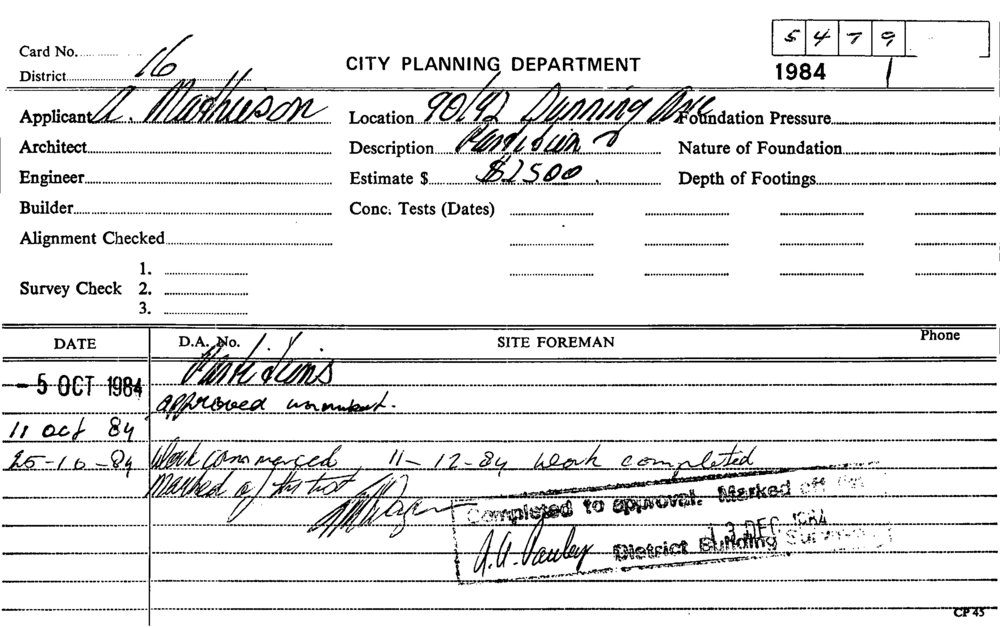 5 4 7 9
Card No. 16
CITY PLANNING DEPARTMENT
District
1984 /
Applicant A. Mathieson Location 90/92 Dunning Ave Foundation Pressure
Architect Description Partitions Nature of Foundation
Engineer Estimate $ $2500. Depth of Footings
Builder Conc. Tests (Dates)
Alignment Checked
1.
Survey Check 2.
3.
DATE D.A. No. SITE FOREMAN Phone
- 5 OCT 1984 Partitions
approved
11 oct 84
25-10-84 Work commenced, 11-12-84 work completed
Marked off
Completed to approval. Marked off
13 DEC 1984
District Building Surveyor
CP 45